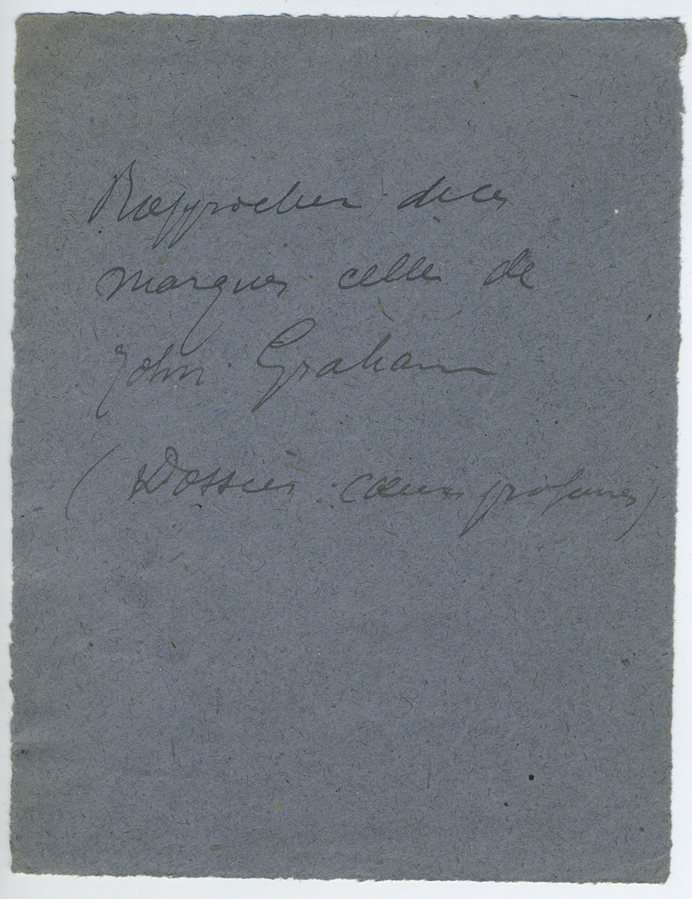 Rapprocher de ces
marques celle de
John Graham
(Dossier : cœurs profanes)